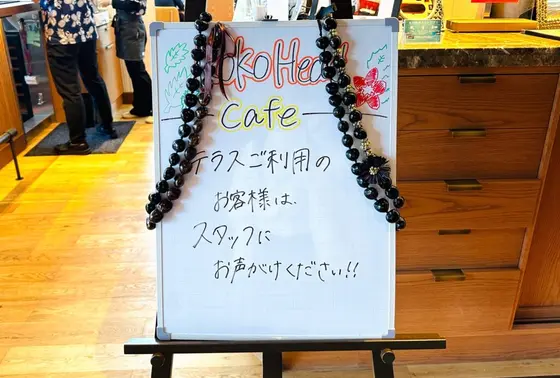 Koko Head
cafe
テラスご利用の
お客様は、
スタッフに
お声がけください!!